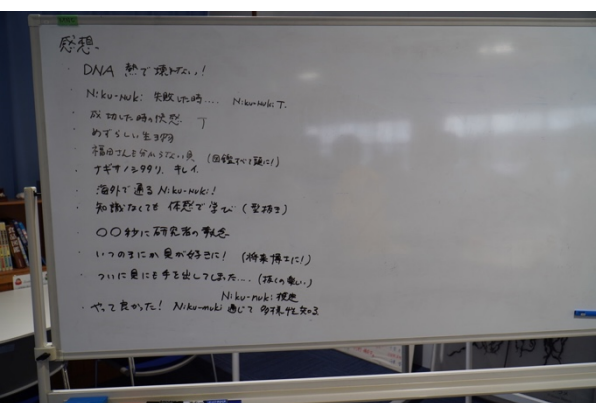 感想.
・DNA 熱で壊れない!
・Niku-nuki 失敗した時.... Niku-nuki T.
・成功した時の快感 T
・めずらしい生き物
・福田さんも分からない貝 (図鑑すべて頭に!)
・ナギサノシタタリ. キレイ.
・海外で通る Niku-nuki!
・知識なくても 体感で学び (型抜き)
・〇〇秒に研究者の執念
・いつのまにか貝が好きに! (将来博士に!)
・ついに貝にも手を出してしまった.... (抜くの楽しい.)
Niku-nuki 推進
・やって良かった! Niku-nuki 通じて 多様性知る